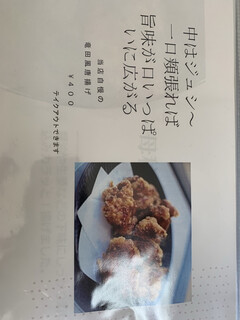 中はジュシ～
一口頬張れば
旨味が口いっぱ
いに広がる
当店自慢の
竜田風唐揚げ
￥４００
テイクアウトできます